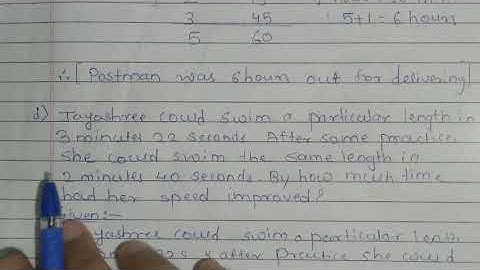 3 45 5+1 = 6 hours
5 60
∴ [Postman was 6 hours out for delivering]
d) Jayashree could swim a particular length in
3 minutes 22 seconds. After some practice,
she could swim the same length in
2 minutes 40 seconds. By how much time
had her speed improved?
Given:-
Jayashree could swim a particular
22s & after Practice she could